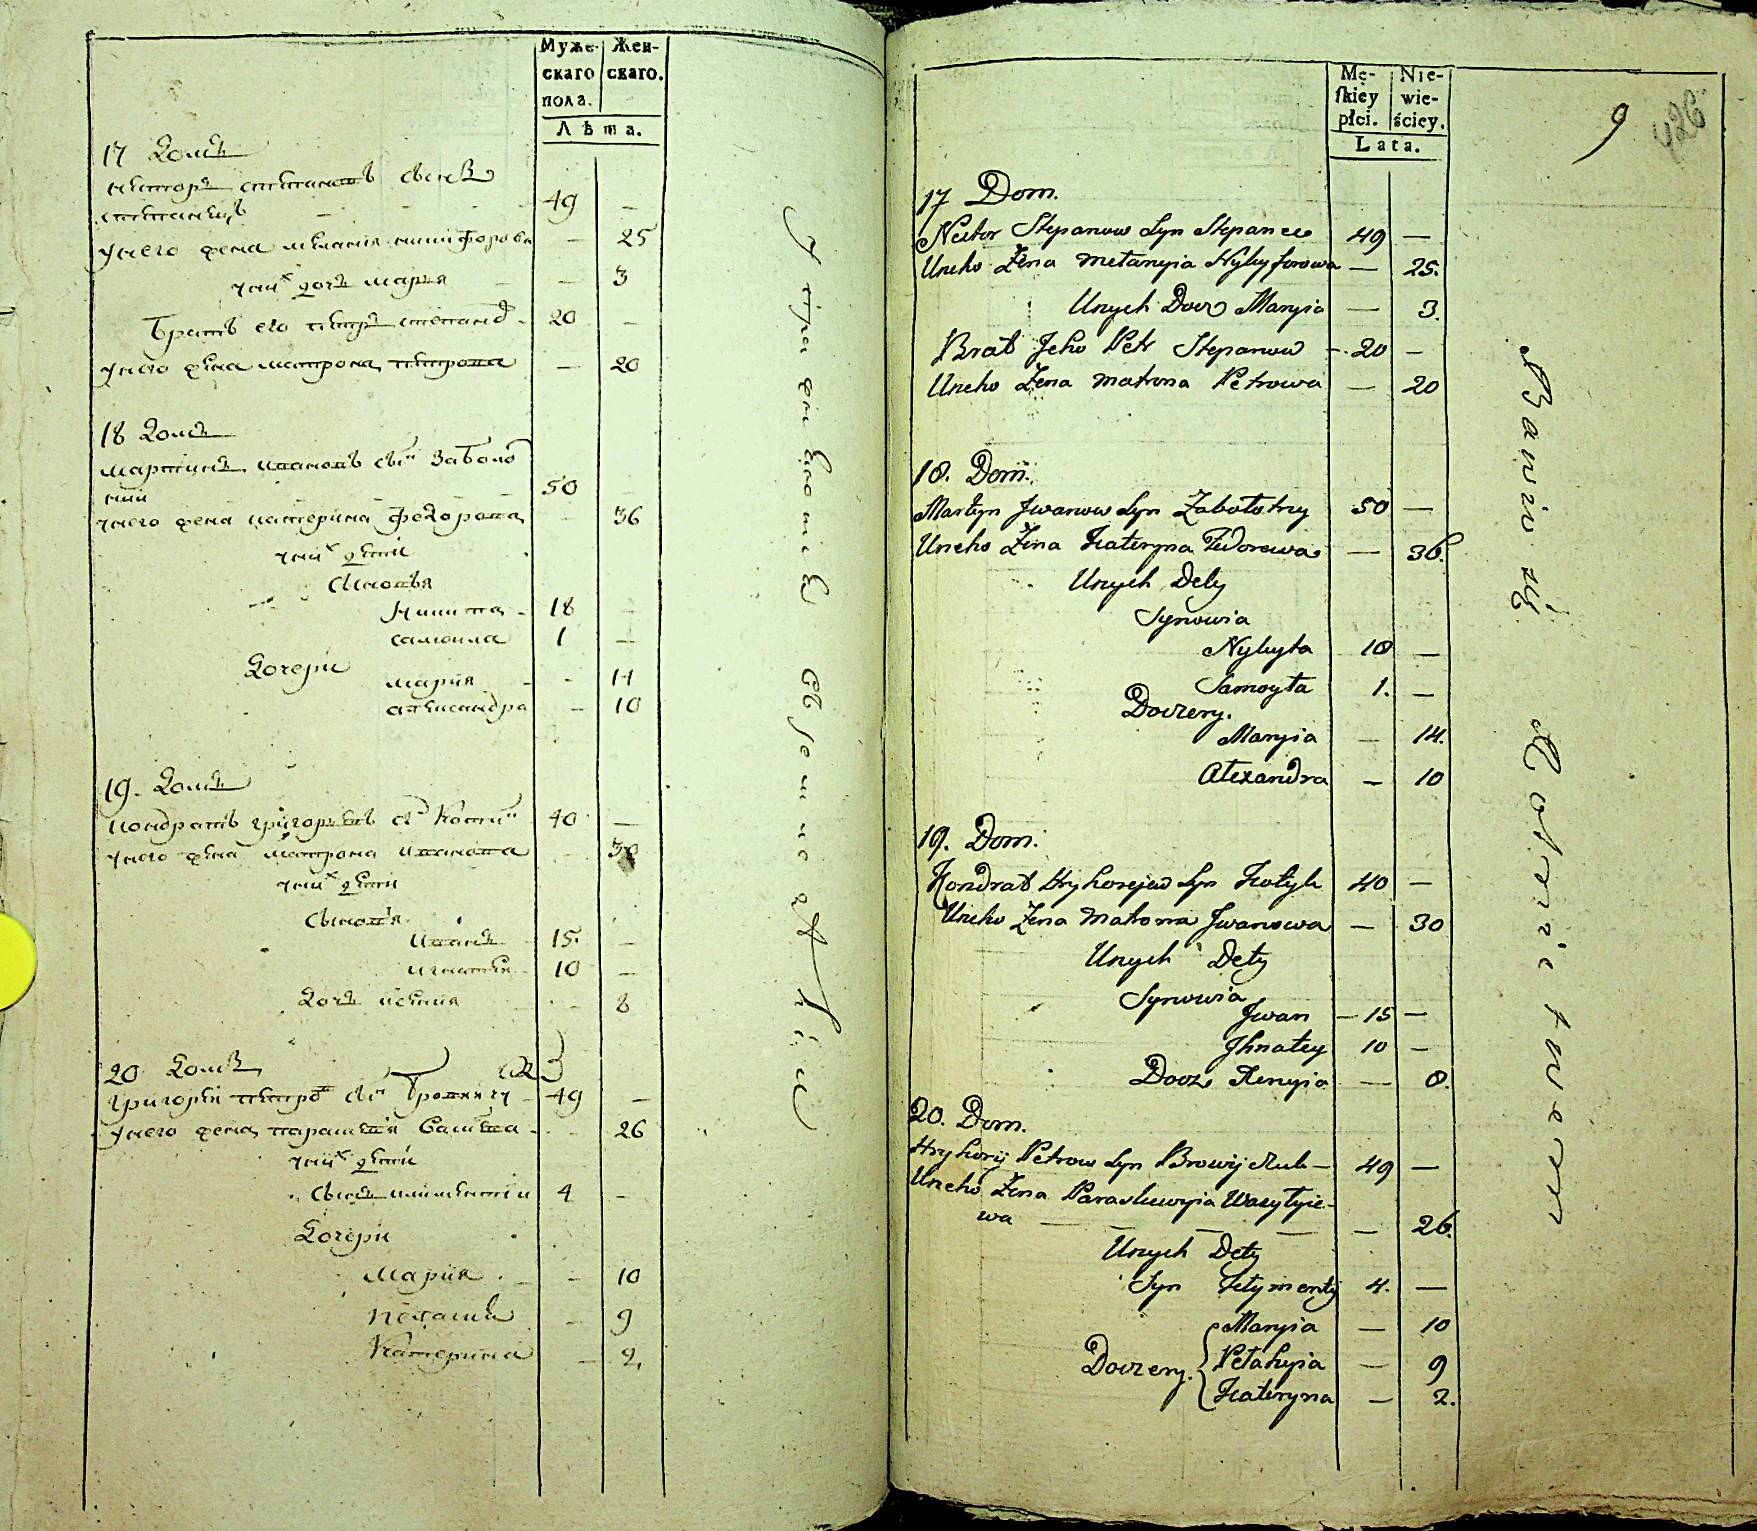 Муже-
скаго
пола.
Жен-
скаго.
Лѣта.
17 Домъ
Несторъ Степановъ Сынъ
Степанецъ 49 —
Унего жена Мелания Никифорова — 25
Унихъ дочь Мария — 3
Братъ его Петръ Степановъ 20 —
Унего жена Матрона Петрова — 20
18 Домъ
Мартинъ Ивановъ Сынъ Заболот
ний 50
Унего жена Катерина Федорова 36
Унихъ дети
Сыновья
Никита 18
Самоила 1 —
Дочери
Мария - 14
Александра — 10
19. Домъ
Кондратъ Григорьевъ Сынъ 40 —
Унего жена Матрона Иванова 30
Унихъ дети
Сыновья
Иванъ 15 —
Игнатей 10 —
Дочь Ксения - 8
20 Домъ
Григорей Петровъ Сынъ 49 —
Унего жена Параскевия 26
Унихъ дети
Сынъ Климентий 4 -
Дочери
Мария - 10
Пелагия - 9
Катерина — 2
Упражняются въ земледѣлии
Mę-
ſkiey
płci.
Nie-
wie-
ściey.
Lata.
9
426
17 Dom.
Nestor Stepanow Syn Stepanec 49 —
Uneho Żena Melanyia Nykyforowa — 25.
Unych Docz Maryia — 3.
Brat Jeho Petr Stepanow - 20 —
Uneho Żena Matrona Petrowa — 20
18. Dom.
Martyn Jwanow Syn Zabołotny 50 —
Uneho Żena Kateryna Fedorowa — 36.
Unych Dety
Synowia
Nykyta 18 —
Samoyła 1. —
Doczery.
Maryia — 14.
Alexandra — 10
19. Dom.
Kondrat Hryhorejew Syn Kotyk 40 —
Uneho Żena Matrona Jwanowa — 30
Unych Dety
Synowia
Jwan — 15 —
Jhnatey 10 —
Docz Xenyia — 8.
20. Dom.
Hryhorij Petrow Syn — 49 —
Uneho Żena Paraskewyia Wasylyie-
wa — 26.
Unych Dety
Syn Kłymentij 4. —
Maryia — 10
Doczery. Pelahyia — 9
Kateryna — 2.
Bawio się Rolnictwem